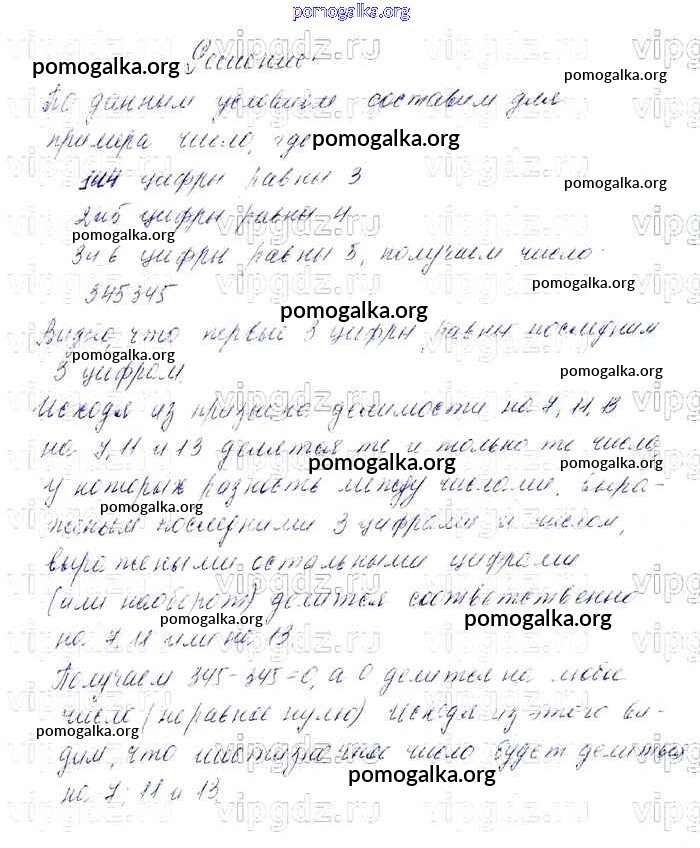 pomogalka.org
Решение
pomogalka.org
По данным условиям составим для
примера число, где
pomogalka.org
1и4 цифры равны 3
pomogalka.org
2и5 цифры равны 4
pomogalka.org
3и6 цифры равны 5, получаем число
345345
pomogalka.org
pomogalka.org
Видно, что первый 3 цифры равны последним
pomogalka.org
3 цифрам.
pomogalka.org
Исходя из признака делимости на 7, 11, 13
на 7, 11 и 13 делятся те и только те числа,
pomogalka.org
pomogalka.org
у которых разность между числами, выра-
pomogalka.org
женным последними 3 цифрами и числом,
выражеными остальными цифрами
(или наоборот) делится соответственно
pomogalka.org
pomogalka.org
на 7, 11 или на 13.
Получаем 345-345=0, а 0 делится на любое
число (неравное нулю) Исходя из этого ви-
pomogalka.org
дим, что шестизначное число будет делиться
pomogalka.org
на 7, 11 и 13
vipgdz.ru